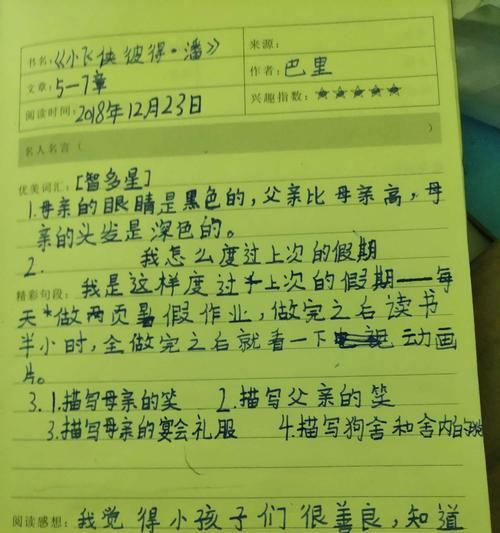 书名：《小飞侠彼得·潘》
来源：
文章：5—7章
作者：巴里
阅读时间：2018年12月23日
兴趣指数：★★★★★
名人名言（ ）
优美词汇：[智多星]
1.母亲的眼睛是黑色的，父亲比母亲高，母
亲的头发是深色的。
2. 我怎么度过上次的假期
精彩句段：我是这样度过上次的假期——每
天*做两页寒假作业，做完之后读书
半小时，全做完之后就看一下动画
片。
3.1.描写母亲的笑 2.描写父亲的笑
3.描写母亲的宴会礼服 4.描写狗舍和舍内的
阅读感想：我觉得小孩子们很善良，知道